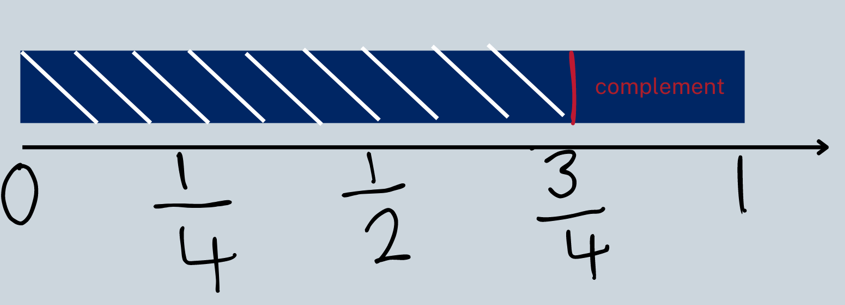 complement
0 1/4 1/2 3/4 1